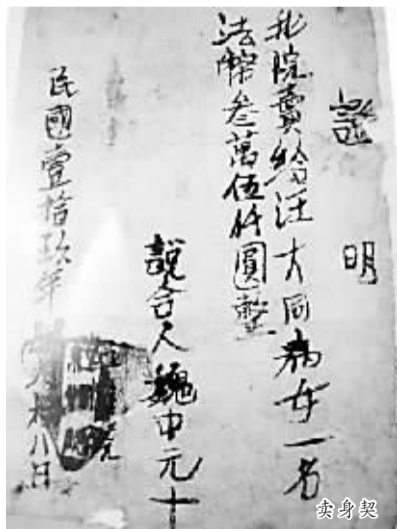 證明
我院賣給汪大同病女一名
法幣叁萬伍仟圓整
說合人魏中元十
民國壹拾玖年
八日
卖身契